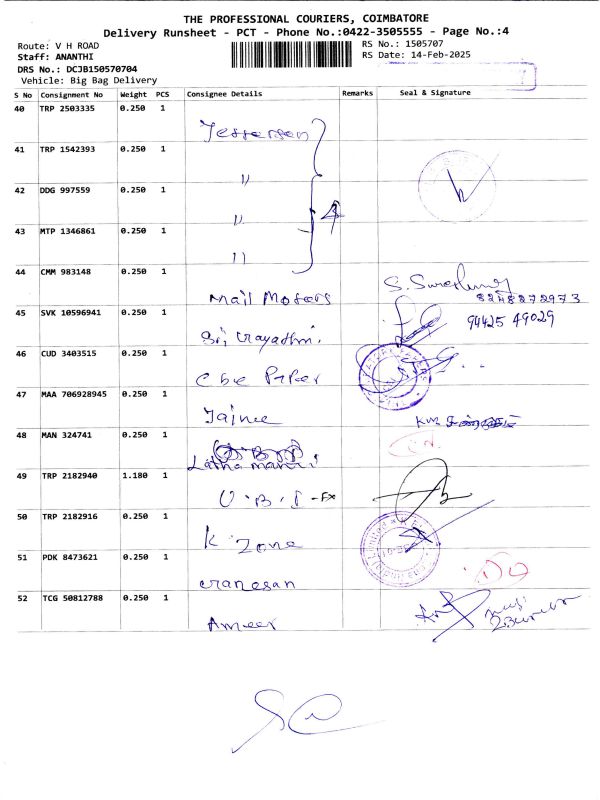 THE PROFESSIONAL COURIERS, COIMBATORE
Delivery Runsheet - PCT - Phone No.:0422-3505555 - Page No.:4
Route: V H ROAD
RS No.: 1505707
Staff: ANANTHI
RS Date: 14-Feb-2025
DRS No.: DCJB150570704
Vehicle: Big Bag Delivery
S No Consignment No Weight PCS Consignee Details Remarks Seal & Signature
40 TRP 2503335 0.250 1
41 TRP 1542393 0.250 1 "
42 DDG 997559 0.250 1 "
4
43 MTP 1346861 0.250 1 "
44 CMM 983148 0.250 1 Mail Motors
8248272973
45 SVK 10596941 0.250 1 Sri
94425 49029
46 CUD 3403515 0.250 1 Cbe Paper
47 MAA 706928945 0.250 1
48 MAN 324741 0.250 1
49 TRP 2182940 1.180 1 U.B.I - Fx
50 TRP 2182916 0.250 1 K Zone
51 PDK 8473621 0.250 1
52 TCG 50812788 0.250 1 Ameer